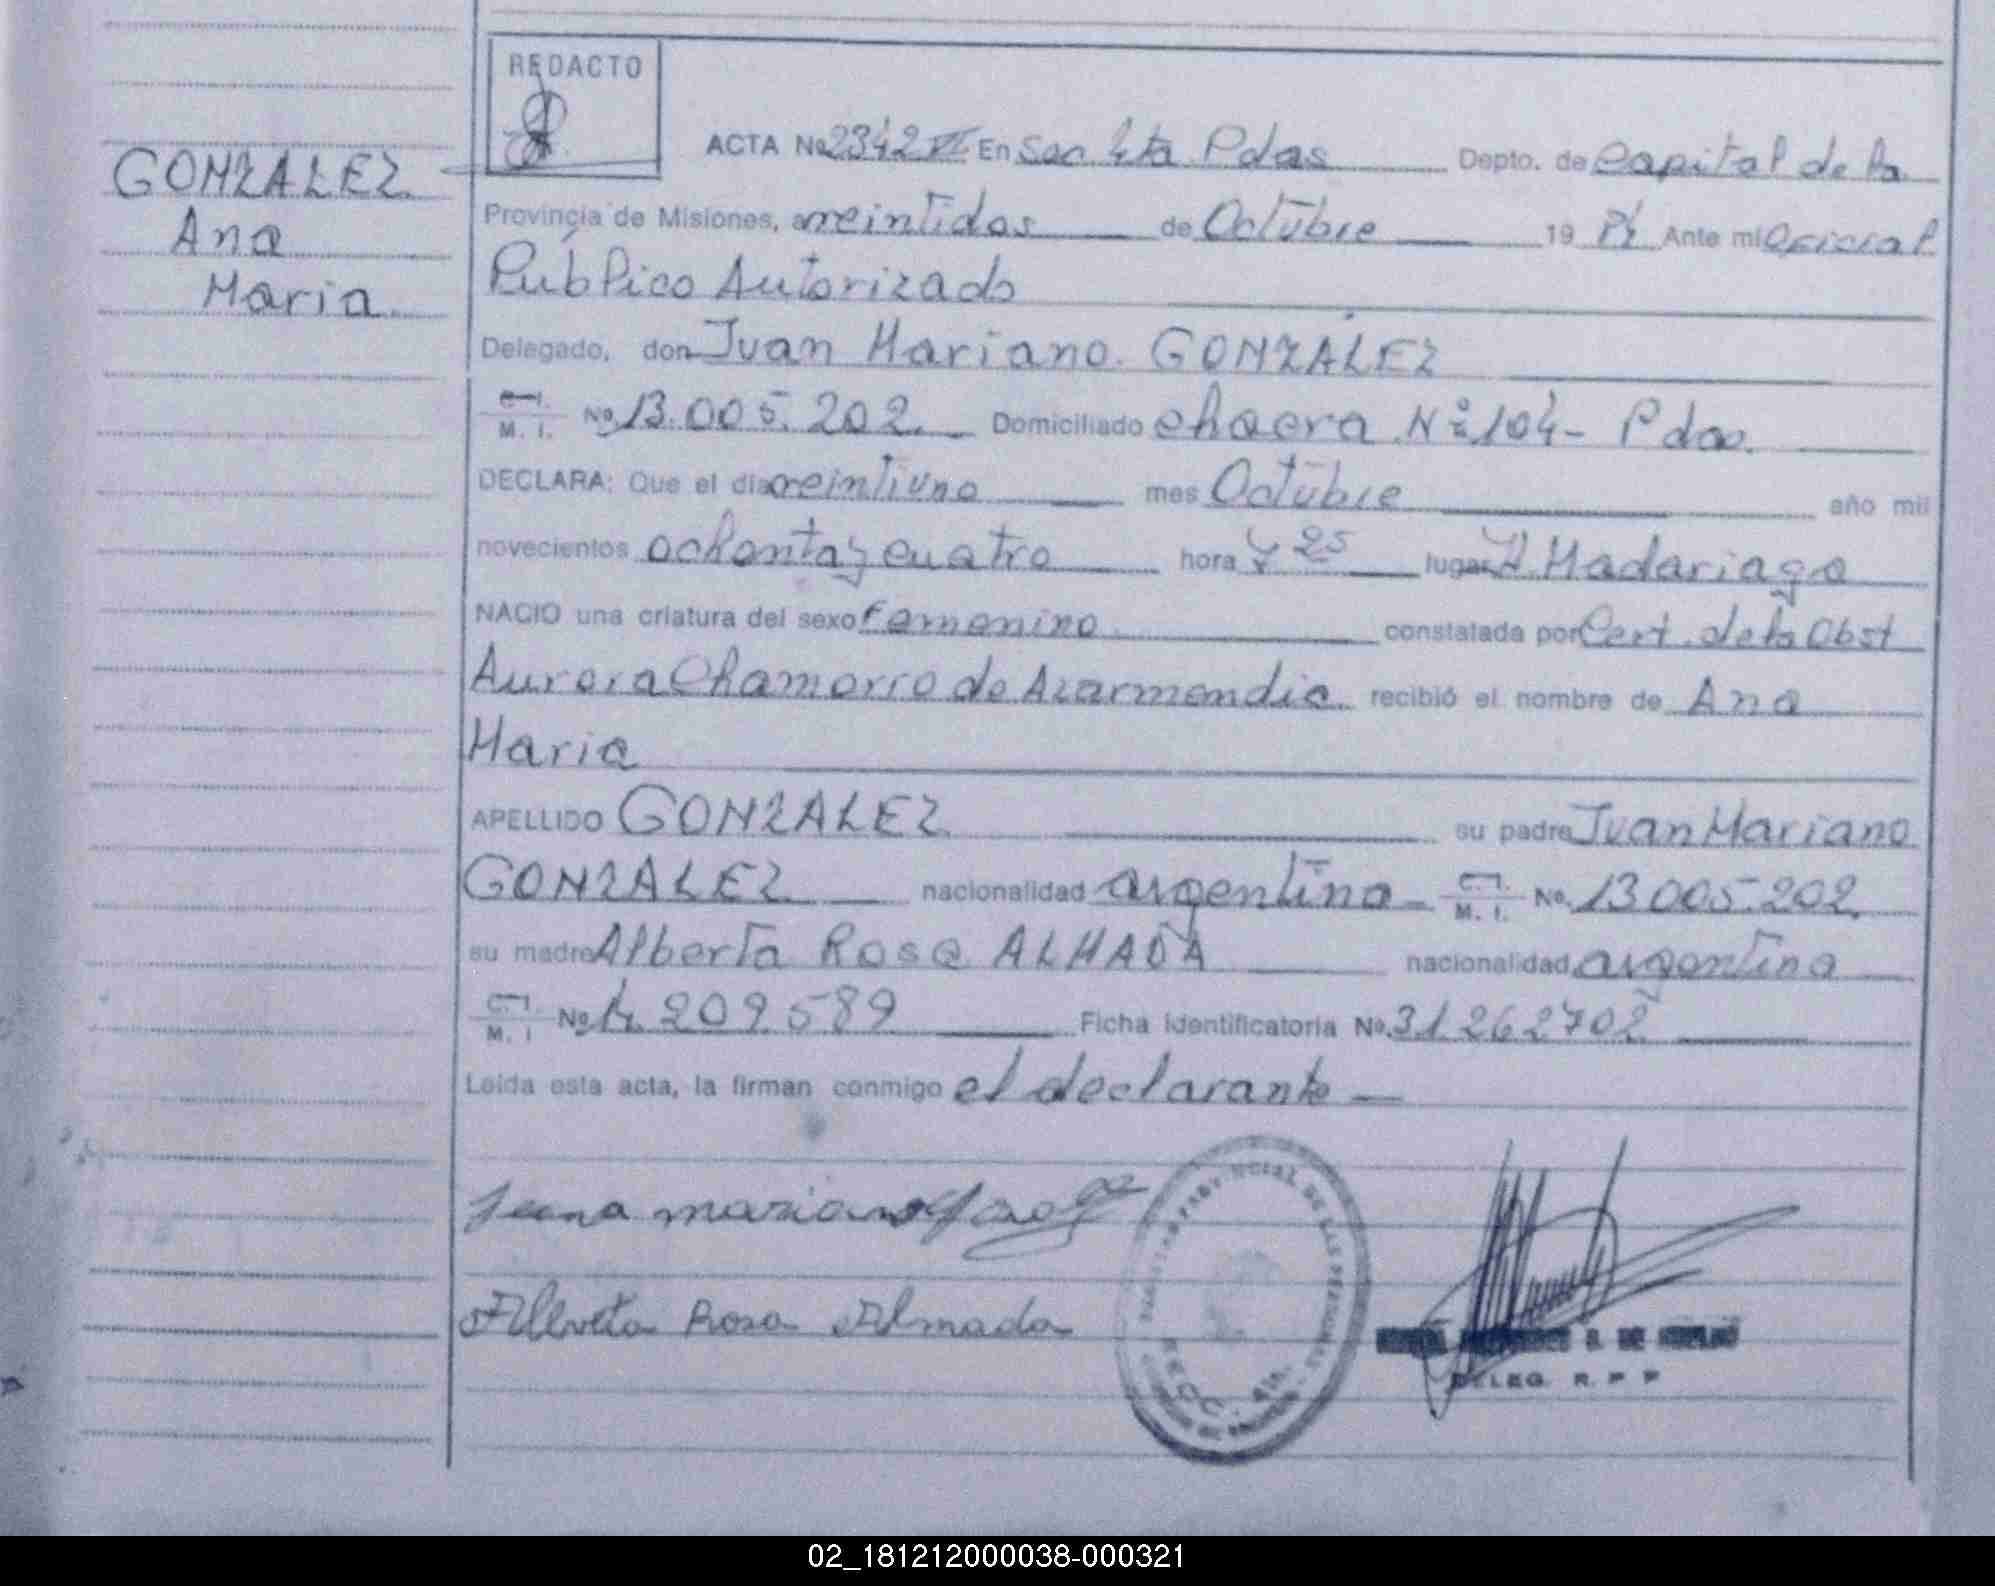 REDACTO
ACTA No 2342 VI En Sec 4ta Pdas Depto. de Capital de la
GONZALEZ
Ana
Maria
Provincia de Misiones, a veintidos de Octubre 19 84 Ante mi Oficial
Público Autorizado
Delegado, don Juan Mariano GONZALEZ
C.I. M. I. No. 13.005.202 Domiciliado chacra Nº 104 - Pdas.
DECLARA: Que el dia veintiuno mes Octubre año mil
novecientos ochenta y cuatro hora 25 lugar H. Madariaga
NACIO una criatura del sexo femenino constatada por Cert. de la Obst
Aurora Chamorro de Azarmendia recibió el nombre de Ana
Maria
APELLIDO GONZALEZ su padre Juan Mariano
GONZALEZ nacionalidad argentina C.I. M. I. No. 13.005.202
su madre Alberta Rosa ALMADA nacionalidad argentina
C.I. M. I No 209.589 Ficha identificatoria No. 31262702
Leida esta acta, la firman conmigo el declarante
Alberta Rosa Almada
DELEG. R. P. P
02_181212000038-000321